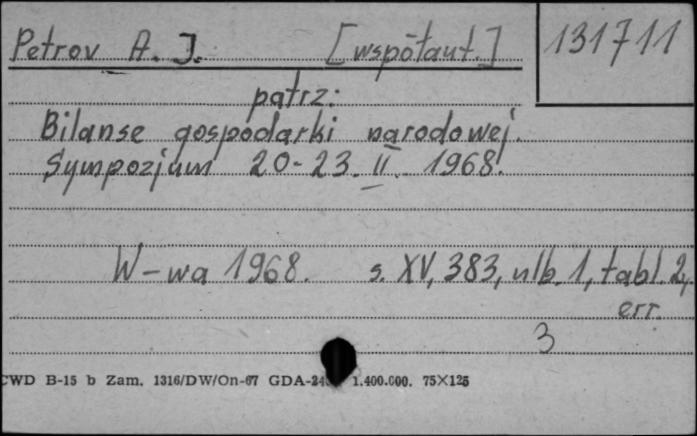 Petrov A. J. [współaut.] 131711
patrz:
Bilanse gospodarki narodowej.
Sympozjum 20-23. II. 1968.
W-wa 1968. s. XV, 383, nlb. 1, tabl. 2,
err.
3
CWD B-15 b Zam. 1316/DW/On-67 GDA-24 1.400.000. 75×125